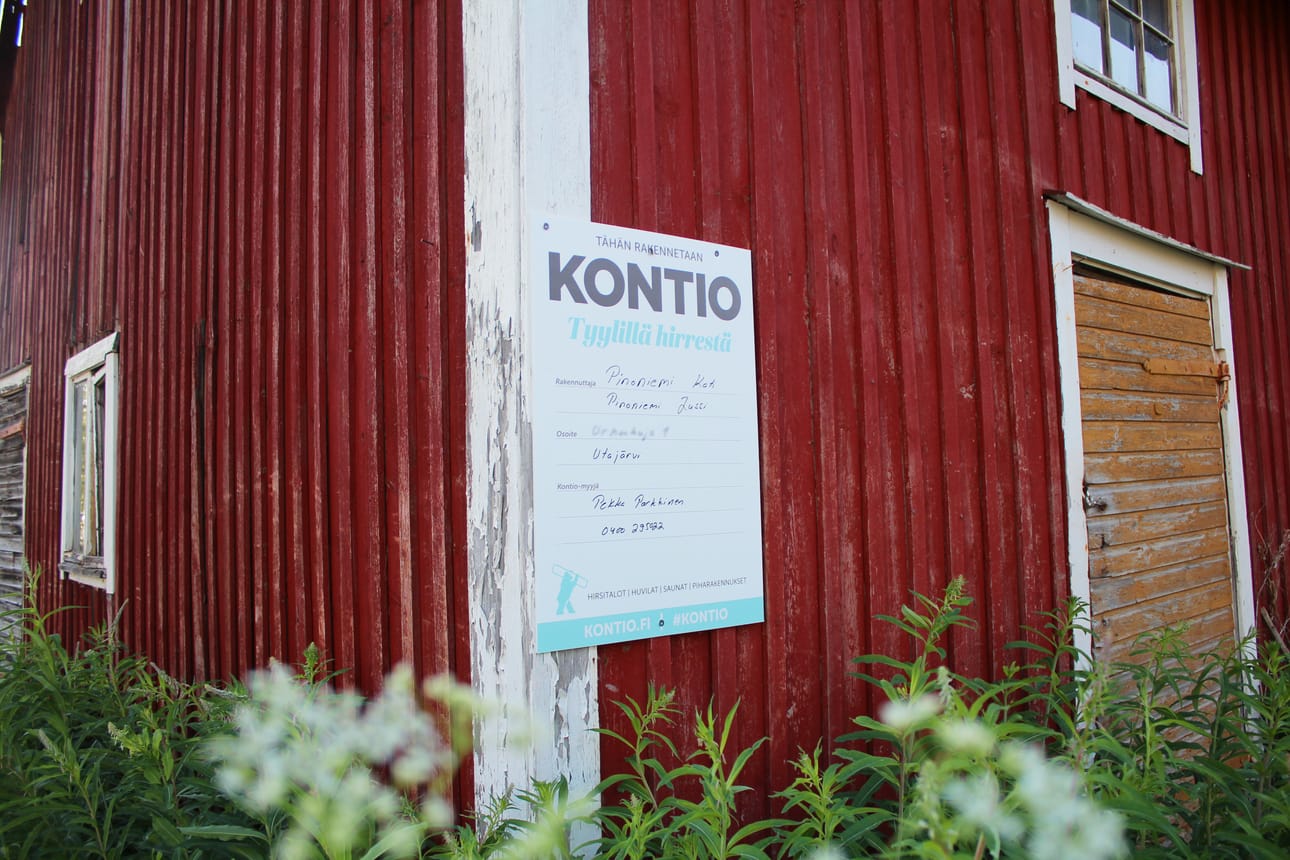 TÄHÄN RAKENNETAAN
KONTIO
Tyylillä hirrestä
Rakennuttaja Pinoniemi Kati
Pinoniemi Jussi
Osoite
Utajärvi
Kontio-myyjä
Pekka Parkkinen
0400 295922
HIRSITALOT | HUVILAT | SAUNAT | PIHARAKENNUKSET
KONTIO.FI #KONTIO